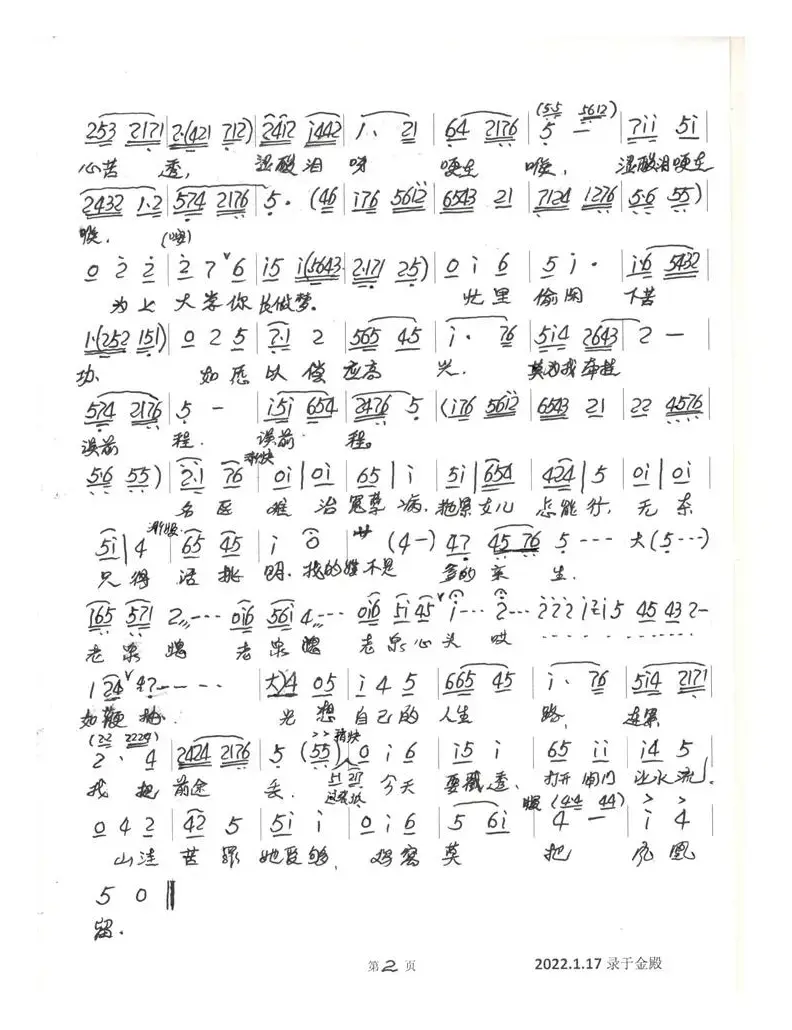 253 2171 | 2·(421 712) | 2412 1442 | 1· 21 | 64 2176 | 5 — | 711 51 |
(55 5612)
心苦 透, 泪 呀 哽生 喉, 泪哽生
2432 1·2 | 574 2176 | 5· (46 | 176 5612 | 6543 21 | 7124 1276 | 5·6 55) |
喉. (嗯)
0 2 2 | 2 7 6 | 15 1(5643 | 2·171 25) | 0 1 6 | 5 1· | 1·6 5432 |
为上大学你长做梦. 忙里偷闲 下苦
1·(252 151) | 0 2 5 | 7·1 2 | 565 45 | 1· 76 | 514 2643 | 2 — |
功. 如愿以偿应高 兴. 莫为我牵挂
574 2176 | 5 — | 151 654 | 2476 5 | (176 5612 | 6543 21 | 22 4576 |
误前 程. 误前 程.
5·6 55) | 2·1 76 | 01 | 01 | 65 | 1 | 51 | 654 | 424 | 5 | 01 | 01 |
渐快
名医难治冤孽病. 拖累女儿怎能行. 无奈
51 | 4 | 65 45 | 1 0 | サ (4—) 47 45 76 5---- 大(5---)
渐慢
只得话挑明. 我的嫂不是 的亲 生.
165 571 2---- 016 561 4---- 016 51 45 1--- 2--- 222 121 5 45 43 2—
老 老 老 心头 哎
1 24 47----- | 大)4 05 | 1 4 5 | 665 45 | 1· 76 | 514 2171 |
如鞭抽. 光想自己的人生 路, 连累
(22 2224)
2· 4 | 2424 2176 | 5 (55) | 0 1 6 | 15 1 | 65 11 | 14 5 |
稍快
51 217
我把前途 丢. 今天要戳透, 打开闸门让水流.
0 4 2 | 42 5 | 51 1 | 0 1 6 | 5 61 | 4 — | 1 4 |
慢 (44 44)
山洼苦罪她受够, 鸡窝莫 把 凤凰
5 0 ‖
留.
第2页
2022.1.17 录于金殿